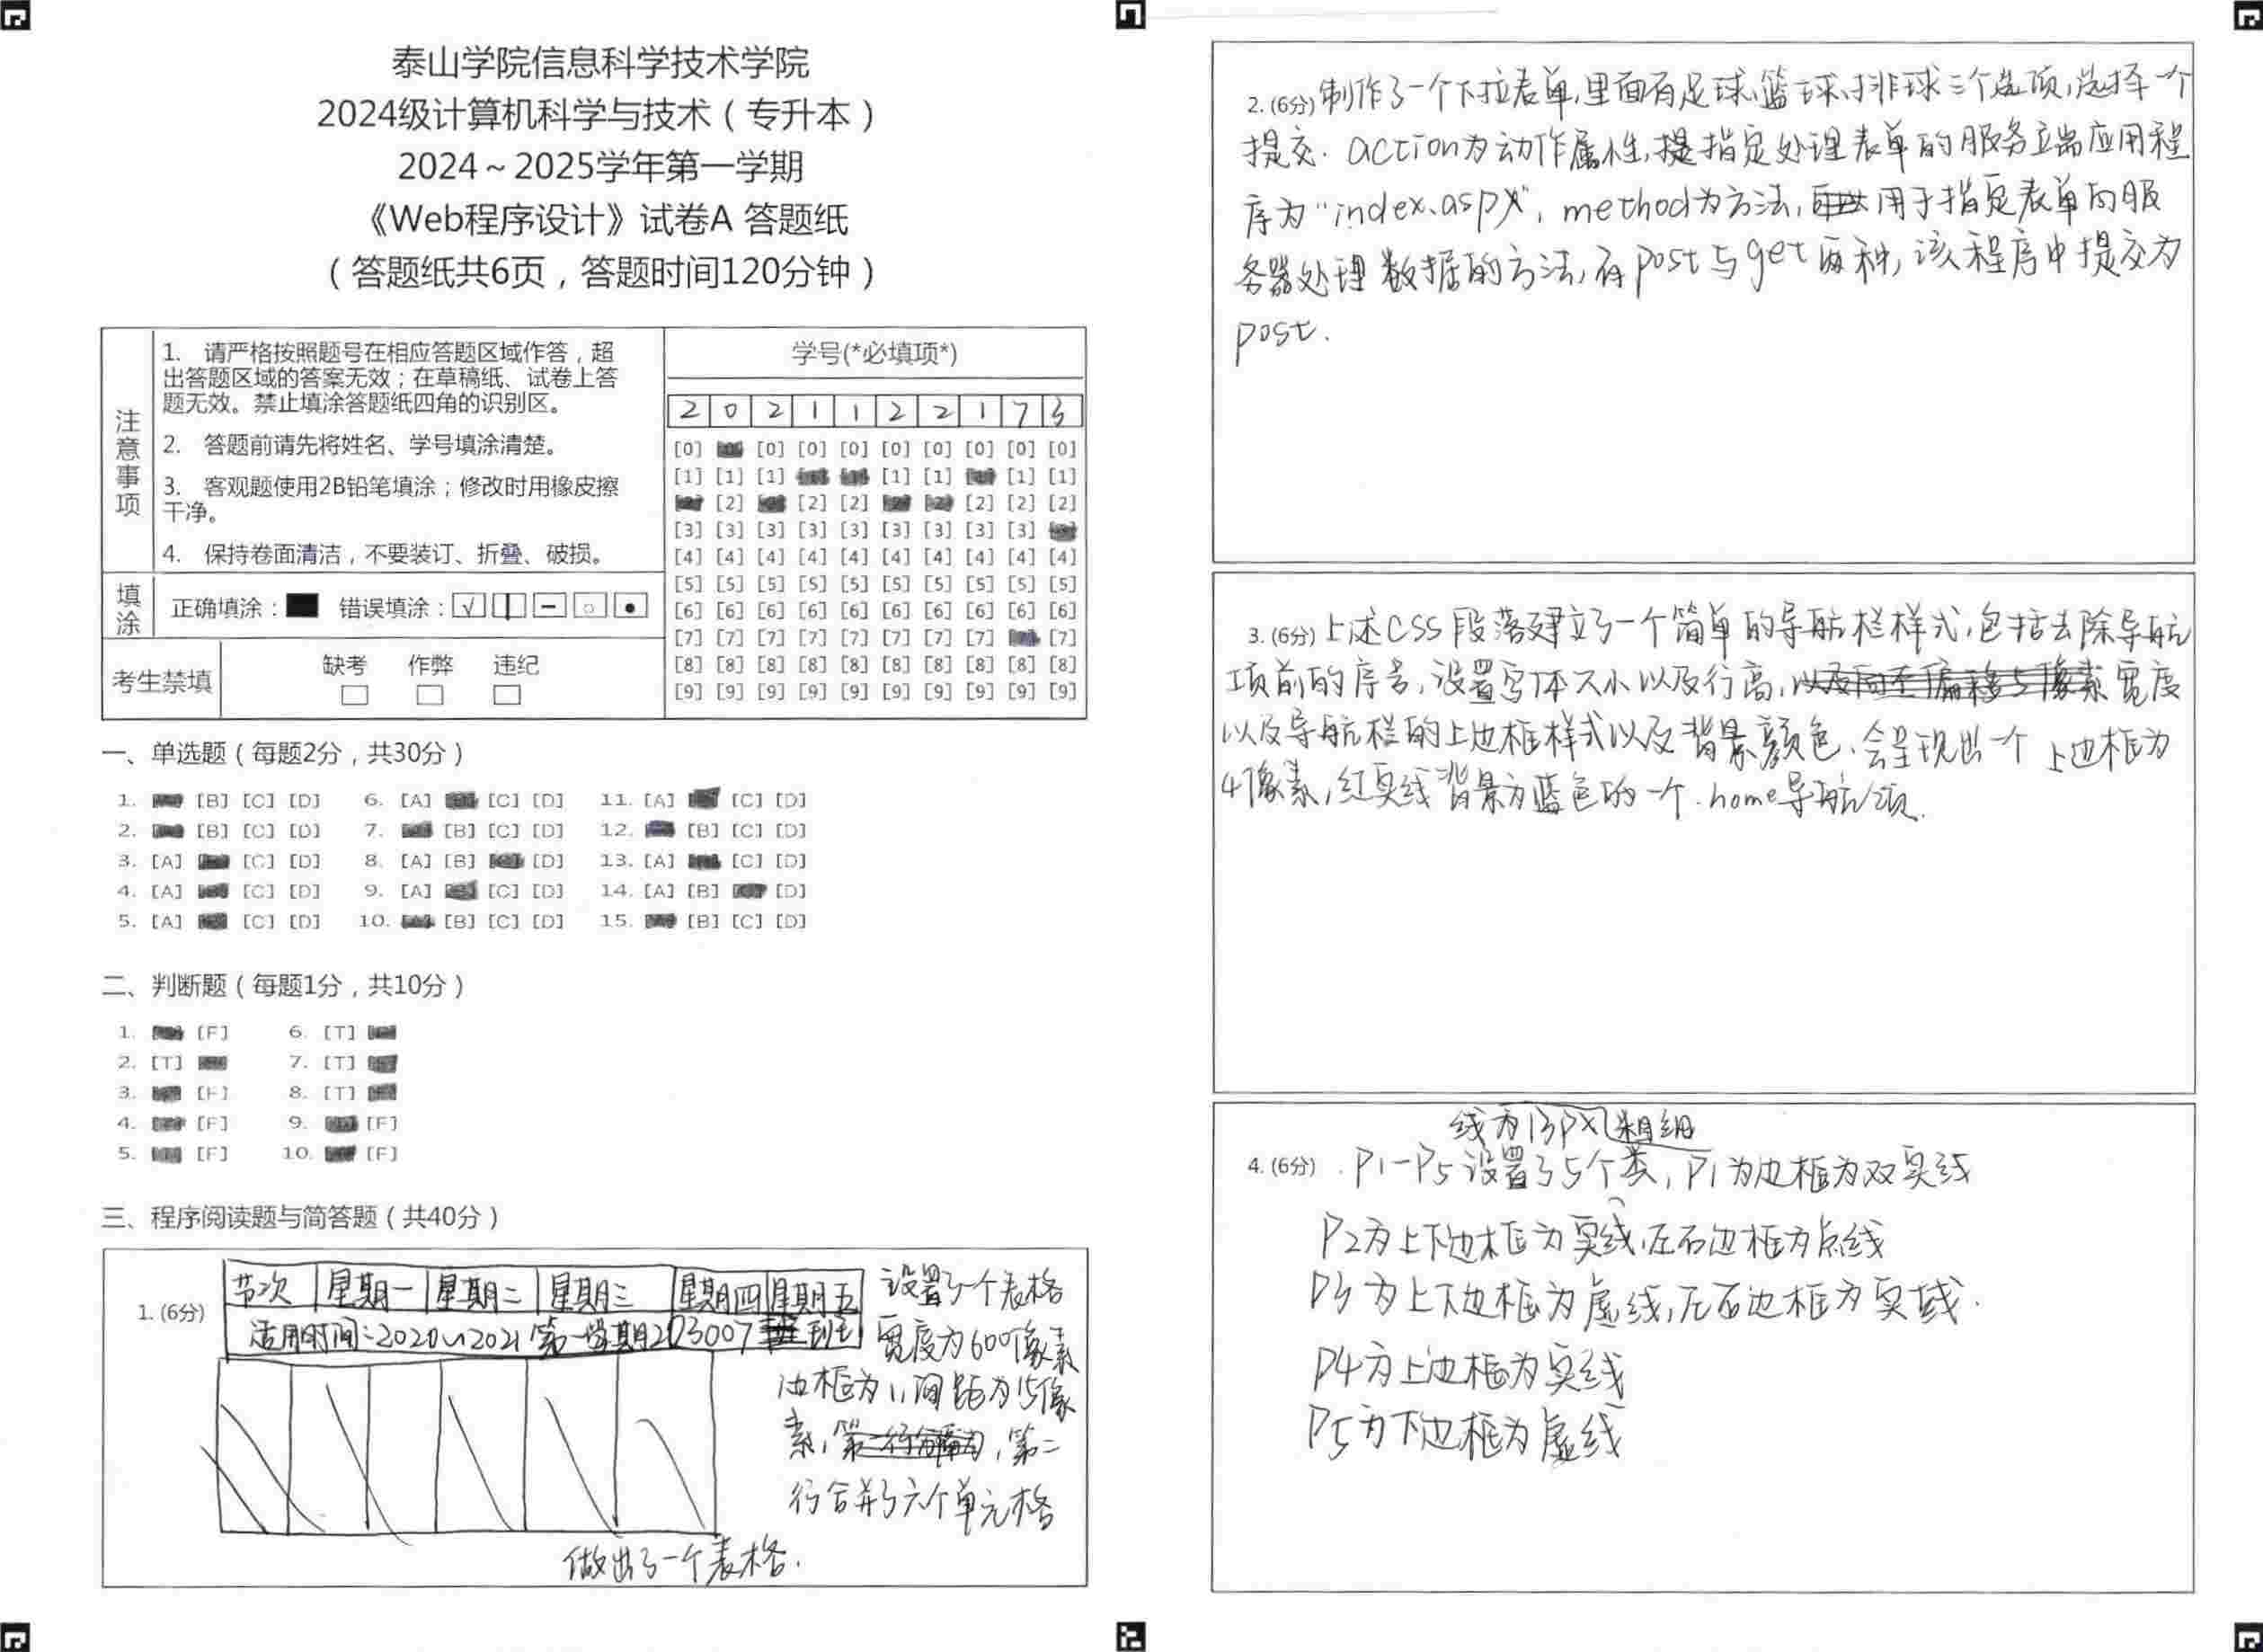 泰山学院信息科学技术学院
2024级计算机科学与技术（专升本）
2024～2025学年第一学期
《Web程序设计》试卷A 答题纸
（答题纸共6页，答题时间120分钟）
注意事项
1. 请严格按照题号在相应答题区域作答，超
出答题区域的答案无效；在草稿纸、试卷上答
题无效。禁止填涂答题纸四角的识别区。
2. 答题前请先将姓名、学号填涂清楚。
3. 客观题使用2B铅笔填涂；修改时用橡皮擦
干净。
4. 保持卷面清洁，不要装订、折叠、破损。
填涂 正确填涂： 错误填涂：
考生禁填 缺考 作弊 违纪
学号(*必填项*)
2 0 2 1 1 2 2 1 7 3
[0] [0] [0] [0] [0] [0] [0] [0] [0]
[1] [1] [1] [1] [1] [1] [1]
[2] [2] [2] [2] [2] [2]
[3] [3] [3] [3] [3] [3] [3] [3] [3]
[4] [4] [4] [4] [4] [4] [4] [4] [4] [4]
[5] [5] [5] [5] [5] [5] [5] [5] [5] [5]
[6] [6] [6] [6] [6] [6] [6] [6] [6] [6]
[7] [7] [7] [7] [7] [7] [7] [7] [7]
[8] [8] [8] [8] [8] [8] [8] [8] [8] [8]
[9] [9] [9] [9] [9] [9] [9] [9] [9] [9]
一、单选题（每题2分，共30分）
1. [B] [C] [D] 6. [A] [C] [D] 11. [A] [C] [D]
2. [B] [C] [D] 7. [B] [C] [D] 12. [B] [C] [D]
3. [A] [C] [D] 8. [A] [B] [D] 13. [A] [C] [D]
4. [A] [C] [D] 9. [A] [C] [D] 14. [A] [B] [D]
5. [A] [C] [D] 10. [B] [C] [D] 15. [B] [C] [D]
二、判断题（每题1分，共10分）
1. [F] 6. [T]
2. [T] 7. [T]
3. [F] 8. [T]
4. [F] 9. [F]
5. [F] 10. [F]
三、程序阅读题与简答题（共40分）
1. (6分)
节次 星期一 星期二 星期三 星期四 星期五
适用时间:2020~2021第一学期203007 到
设置了一个表格
宽度为600像素
边框为1,间距为15像
素, ,第二
行合并了六个单元格
做出了一个表格.
2. (6分) 制作了一个下拉表单,里面有足球、篮球、排球三个选项,选择一个
提交. action为动作属性,提指定处理表单的服务立端应用程
序为"index.aspx", method为方法, 用于指定表单的服
务器处理数据的方法,有post与get两种,该程序中提交为
post.
3. (6分) 上述CSS段落建立了一个简单的导航栏样式,包括去除导航
项前的序号,设置字体大小以及行高, 宽度
以及导航栏的上边框样式以及背景颜色.会呈现出一个 上边框为
4像素,红实线背景为蓝色的一个.home导航项.
线为13px粗细
4. (6分) .P1-P5设置了5个类,P1为边框为双实线
P2为上下边框为实线,左右边框为点线
P3为上下边框为虚线,左右边框为实线.
P4为上边框为实线
P5为下边框为虚线